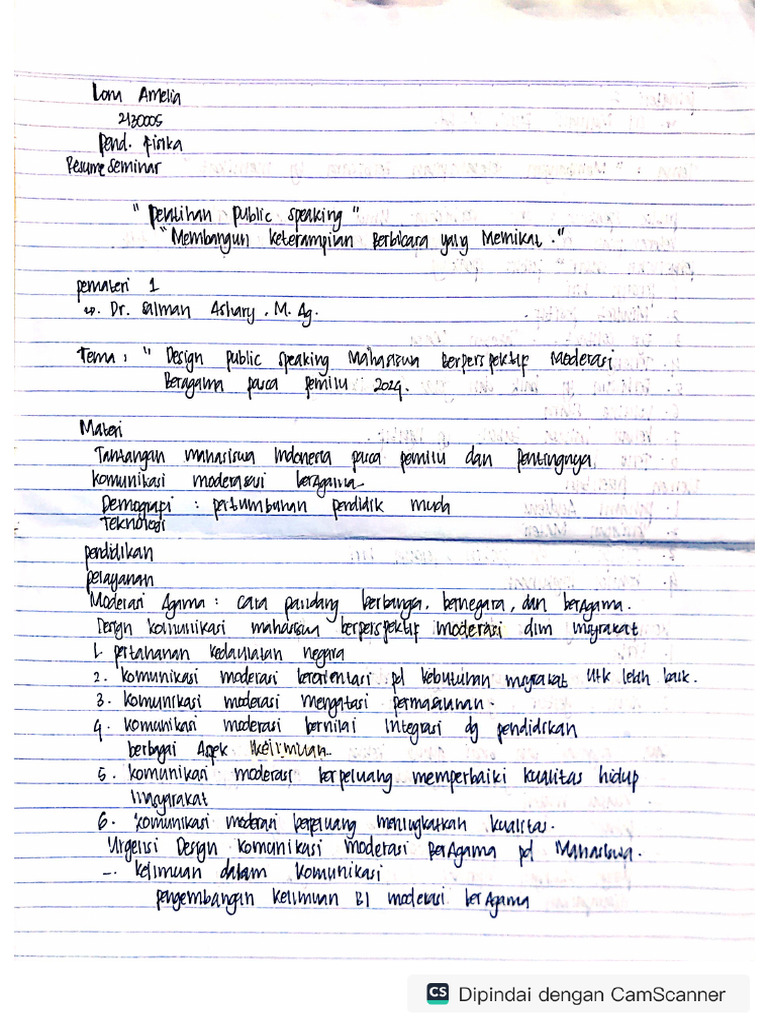 Lora Amelia
2130005
Pend. Fisika
Resume seminar
" Pelatihan public speaking "
"Membangun keterampilan Berbicara yang Memikat."
pemateri 1
Dr. Salman Ashary, M. Ag.
Tema : " Design public speaking Mahasiswa Berperspektif Moderasi
Beragama pasca pemilu 2024.
Materi
Tantangan mahasiswa Indonesia pasca pemilu dan pentingnya
komunikasi moderasi beragama
Demografi : pertumbuhan pendidik muda
Teknologi
pendidikan
pelayanan
Moderasi Agama : cara pandang berbangsa, bernegara, dan berAgama.
Design komunikasi mahasiswa berperspektif moderasi dlm msyrakat
1. pertahanan kedaulatan negara
2. komunikasi moderasi berorientasi pd kebutuhan msyrakat utk lebih baik.
3. komunikasi moderasi mengatasi permasalahan.
4. komunikasi moderasi bernilai integrasi dg pendidikan
berbagai Aspek keilmuan
5. komunikasi moderasi berpeluang memperbaiki kualitas hidup
msyarakat
6. komunikasi moderasi berpeluang meningkatkan kualitas.
Urgensi Design komunikasi moderasi BerAgama pd Mahasiswa.
- keilmuan dalam komunikasi
pengembangan keilmuan BI moderasi berAgama
CS Dipindai dengan CamScanner